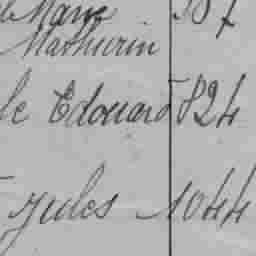 Marie 387
Mathurin
le Edouard 824
Jules 1044